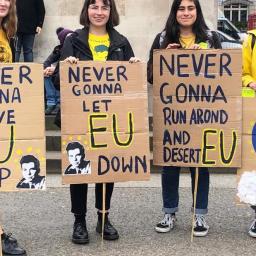 NEVER
GONNA
LET
EU
DOWN
NEVER
GONNA
RUN AROND
AND
DESERT EU